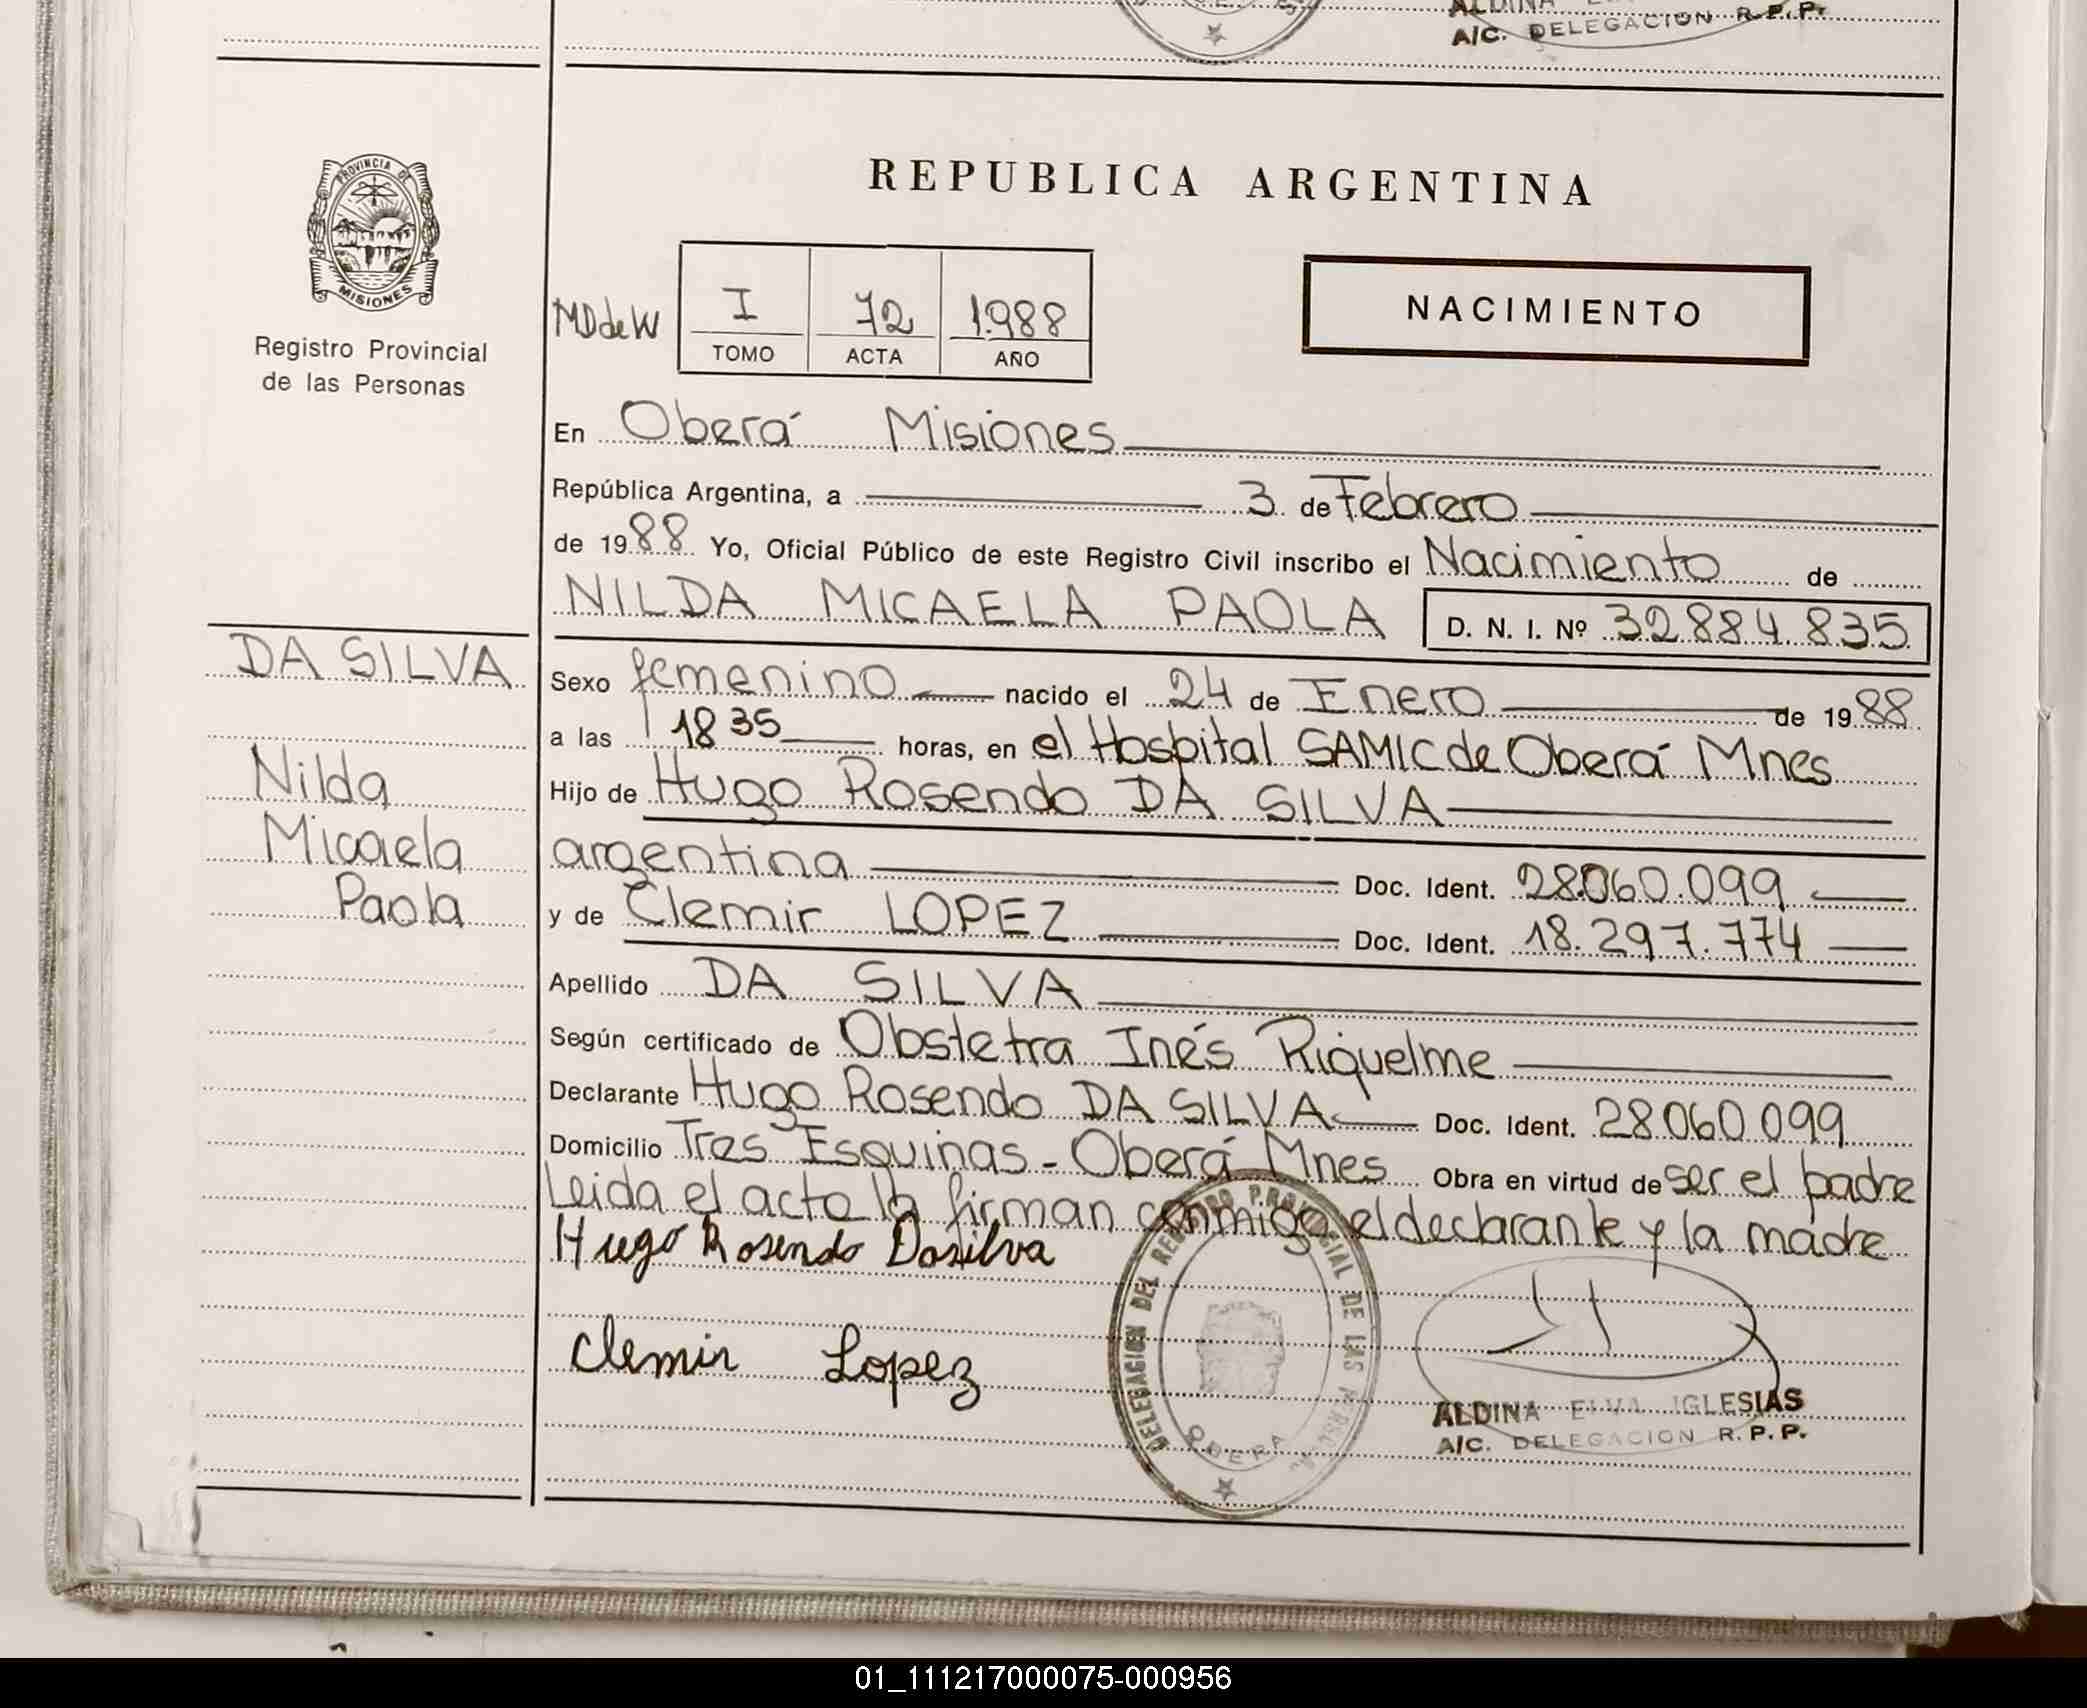 ALDINA
A/C. DELEGACION R.P.P.
PROVINCIA DE
MISIONES
Registro Provincial
de las Personas
REPUBLICA ARGENTINA
MDdeW
I 72 1.988
TOMO ACTA AÑO
NACIMIENTO
En Oberá Misiones
República Argentina, a 3 de Febrero
de 1988 Yo, Oficial Público de este Registro Civil inscribo el Nacimiento de
NILDA MICAELA PAOLA D. N. I. Nº 32884.835
DA SILVA
Nilda
Micaela
Paola
Sexo femenino nacido el 24 de Enero de 1988
a las 18 35 horas, en el Hospital SAMIC de Oberá Mnes
Hijo de Hugo Rosendo DA SILVA
argentina Doc. Ident. 28.060.099
y de Clemir LOPEZ Doc. Ident. 18.297.774
Apellido DA SILVA
Según certificado de Obstetra Inés Riquelme
Declarante Hugo Rosendo DA SILVA Doc. Ident. 28060099
Domicilio Tres Esquinas - Oberá Mnes Obra en virtud de ser el padre
Leida el acta la firman conmigo el declarante y la madre
Hugo Rosendo Dasilva
Clemir Lopez
DELEGACION DEL REGISTRO PROVINCIAL DE LAS PERSONAS
OBERA
ALDINA ELVA IGLESIAS
A/C. DELEGACION R.P.P.
01_111217000075-000956